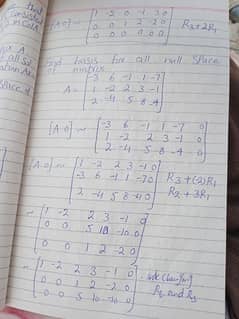 [A 0] ~ [1 -2 0 -1 3 0
0 0 1 2 -2 0 R2+2R1
0 0 0 0 0 0]
Find basis for all null Space
of matrix
-3 6 -1 1 -7
A = 1 -2 2 3 -1
2 -4 5 8 -4
[A 0] ~ [-3 6 -1 1 -7 0
1 -2 2 3 -1 0
2 -4 5 8 -4 0]
[A 0] ~ [1 -2 2 3 -1 0
-3 6 -1 1 -7 0 R3+(-2)R1
2 -4 5 8 -4 0] R2+3R1
~ [1 -2 2 3 -1 0
0 0 5 10 -10 0
0 0 1 2 -2 0]
~ [1 -2 2 3 -1 0
0 0 1 2 -2 0
0 0 5 10 -10 0] R2 and R3